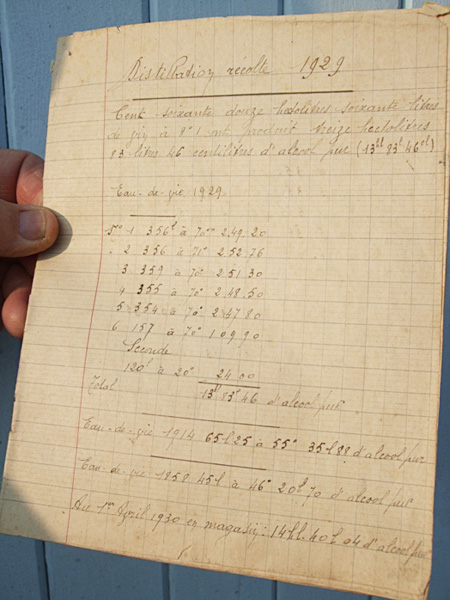 Distillation récolte 1929
Cent soixante douze hectolitres soixante litres
de vin à 8°1 ont produit treize hectolitres
83 litres 46 centilitres d'alcool pur (13hl 83l 46cl)
Eau-de-vie 1929
1 356l à 70° 2.49.20
2 356 à 71° 2.52.76
3 359 à 70° 2.51.30
4 355 à 70° 2.48.50
5 354 à 70° 2.47.80
6 157 à 70° 1.09.90
Seconde
120l à 20° 24 00
Total 13hl 83l 46 d'alcool pur
Eau-de-vie 1914 65l25 à 55° 35l88 d'alcool pur
Eau-de-vie 1858 45l à 46° 20l70 d'alcool pur
Au 1er Avril 1930 en magasin : 14hl. 40l 04 d'alcool pur